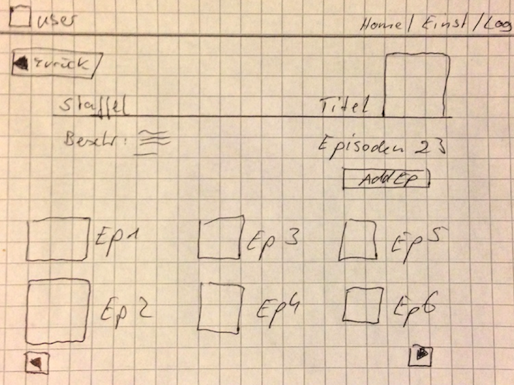 User Home / Einst / Log
Zurück
Staffel Titel
Beschr: Episoden 23
Add Ep
Ep1 Ep3 Ep5
Ep2 Ep4 Ep6